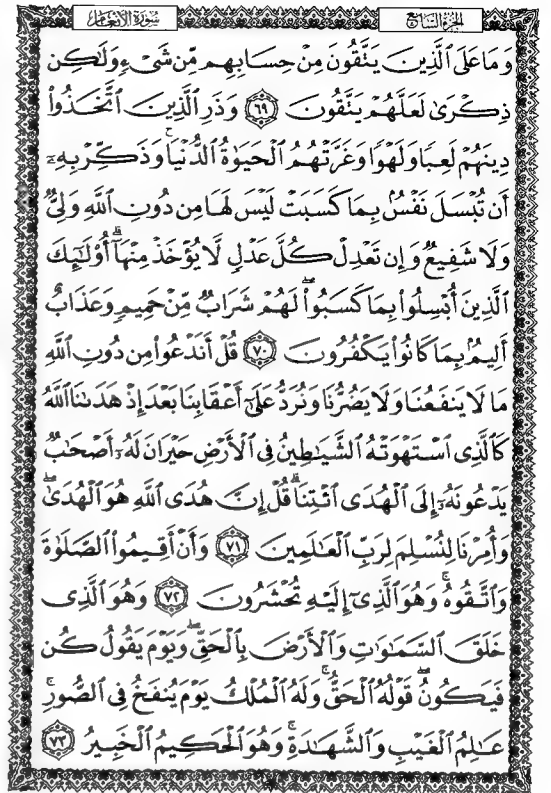 الجزء السابع
سورة الأنعام
وَمَا عَلَى ٱلَّذِينَ يَتَّقُونَ مِنْ حِسَابِهِم مِّن شَىْءٍ وَلَٰكِن
ذِكْرَىٰ لَعَلَّهُمْ يَتَّقُونَ ٦٩ وَذَرِ ٱلَّذِينَ ٱتَّخَذُوا۟
دِينَهُمْ لَعِبًا وَلَهْوًا وَغَرَّتْهُمُ ٱلْحَيَوٰةُ ٱلدُّنْيَا ۚ وَذَكِّرْ بِهِۦٓ
أَن تُبْسَلَ نَفْسٌۢ بِمَا كَسَبَتْ لَيْسَ لَهَا مِن دُونِ ٱللَّهِ وَلِىٌّ
وَلَا شَفِيعٌ وَإِن تَعْدِلْ كُلَّ عَدْلٍ لَّا يُؤْخَذْ مِنْهَآ ۗ أُو۟لَٰٓئِكَ
ٱلَّذِينَ أُبْسِلُوا۟ بِمَا كَسَبُوا۟ ۖ لَهُمْ شَرَابٌ مِّنْ حَمِيمٍ وَعَذَابٌ
أَلِيمٌۢ بِمَا كَانُوا۟ يَكْفُرُونَ ٧٠ قُلْ أَنَدْعُوا۟ مِن دُونِ ٱللَّهِ
مَا لَا يَنفَعُنَا وَلَا يَضُرُّنَا وَنُرَدُّ عَلَىٰٓ أَعْقَابِنَا بَعْدَ إِذْ هَدَىٰنَا ٱللَّهُ
كَٱلَّذِى ٱسْتَهْوَتْهُ ٱلشَّيَٰطِينُ فِى ٱلْأَرْضِ حَيْرَانَ لَهُۥٓ أَصْحَٰبٌ
يَدْعُونَهُۥٓ إِلَى ٱلْهُدَى ٱئْتِنَا ۗ قُلْ إِنَّ هُدَى ٱللَّهِ هُوَ ٱلْهُدَىٰ ۖ
وَأُمِرْنَا لِنُسْلِمَ لِرَبِّ ٱلْعَٰلَمِينَ ٧١ وَأَنْ أَقِيمُوا۟ ٱلصَّلَوٰةَ
وَٱتَّقُوهُ ۚ وَهُوَ ٱلَّذِىٓ إِلَيْهِ تُحْشَرُونَ ٧٢ وَهُوَ ٱلَّذِى
خَلَقَ ٱلسَّمَٰوَٰتِ وَٱلْأَرْضَ بِٱلْحَقِّ ۖ وَيَوْمَ يَقُولُ كُن
فَيَكُونُ ۚ قَوْلُهُ ٱلْحَقُّ ۚ وَلَهُ ٱلْمُلْكُ يَوْمَ يُنفَخُ فِى ٱلصُّورِ ۚ
عَٰلِمُ ٱلْغَيْبِ وَٱلشَّهَٰدَةِ ۚ وَهُوَ ٱلْحَكِيمُ ٱلْخَبِيرُ ٧٣